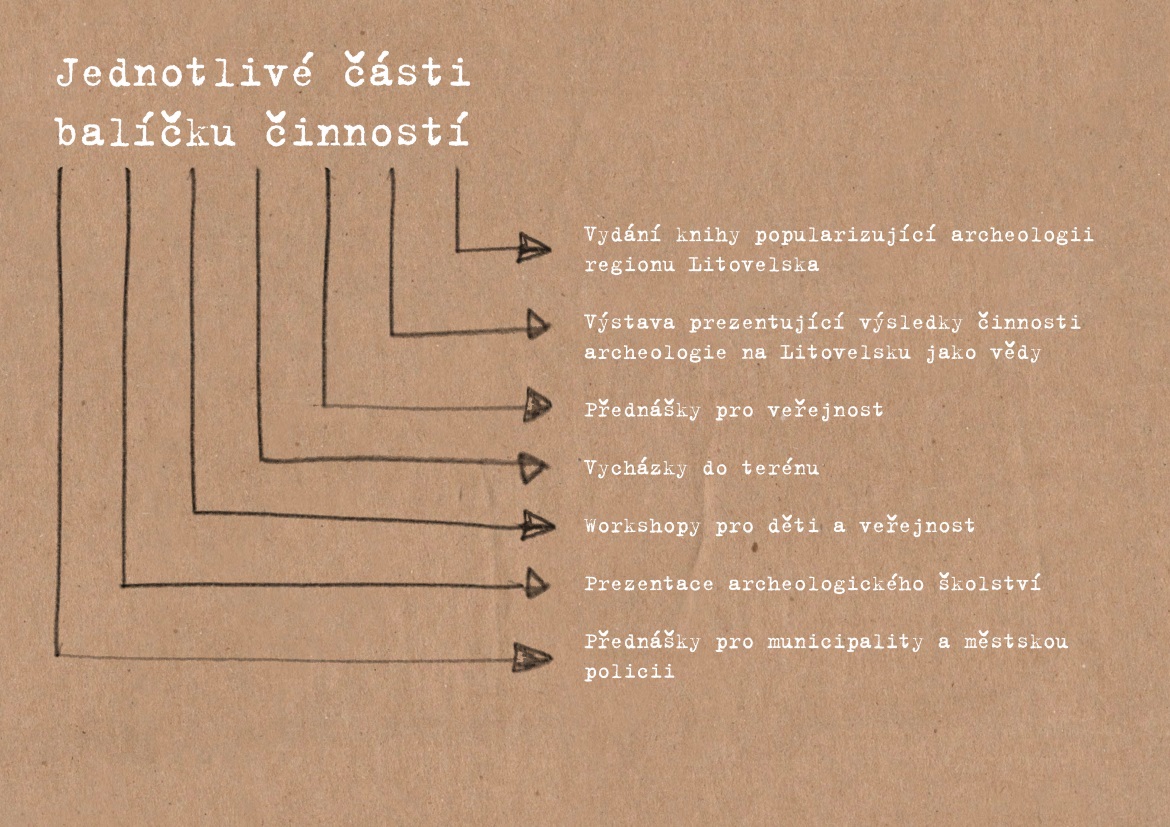 Jednotlivé části
balíčku činností
Vydání knihy popularizující archeologii
regionu Litovelska
Výstava prezentující výsledky činnosti
archeologie na Litovelsku jako vědy
Přednášky pro veřejnost
Vycházky do terénu
Workshopy pro děti a veřejnost
Prezentace archeologického školství
Přednášky pro municipality a městskou
policii